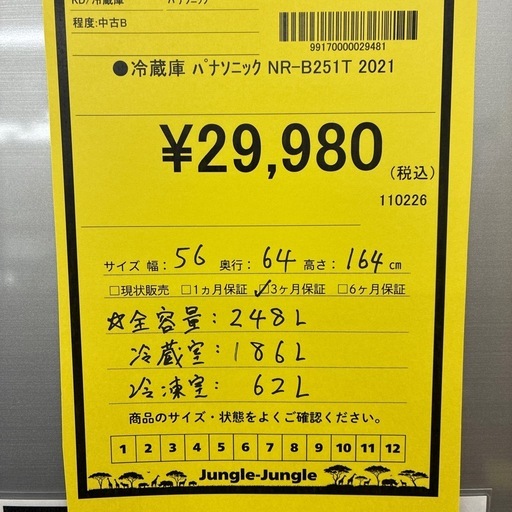 RD/冷蔵庫 パナソニック
程度:中古B
99170000029481
●冷蔵庫 パナソニック NR-B251T 2021
¥29,980
(税込)
110226
サイズ 幅: 56 奥行: 64 高さ: 164 cm
□現状販売 □1ヵ月保証 ☑3ヶ月保証 □6ヶ月保証
☆全容量:248L
冷蔵室:186L
冷凍室:62L
商品のサイズ・状態をよくご確認ください。
1 2 3 4 5 6 7 8 9 10 11 12
Jungle-Jungle